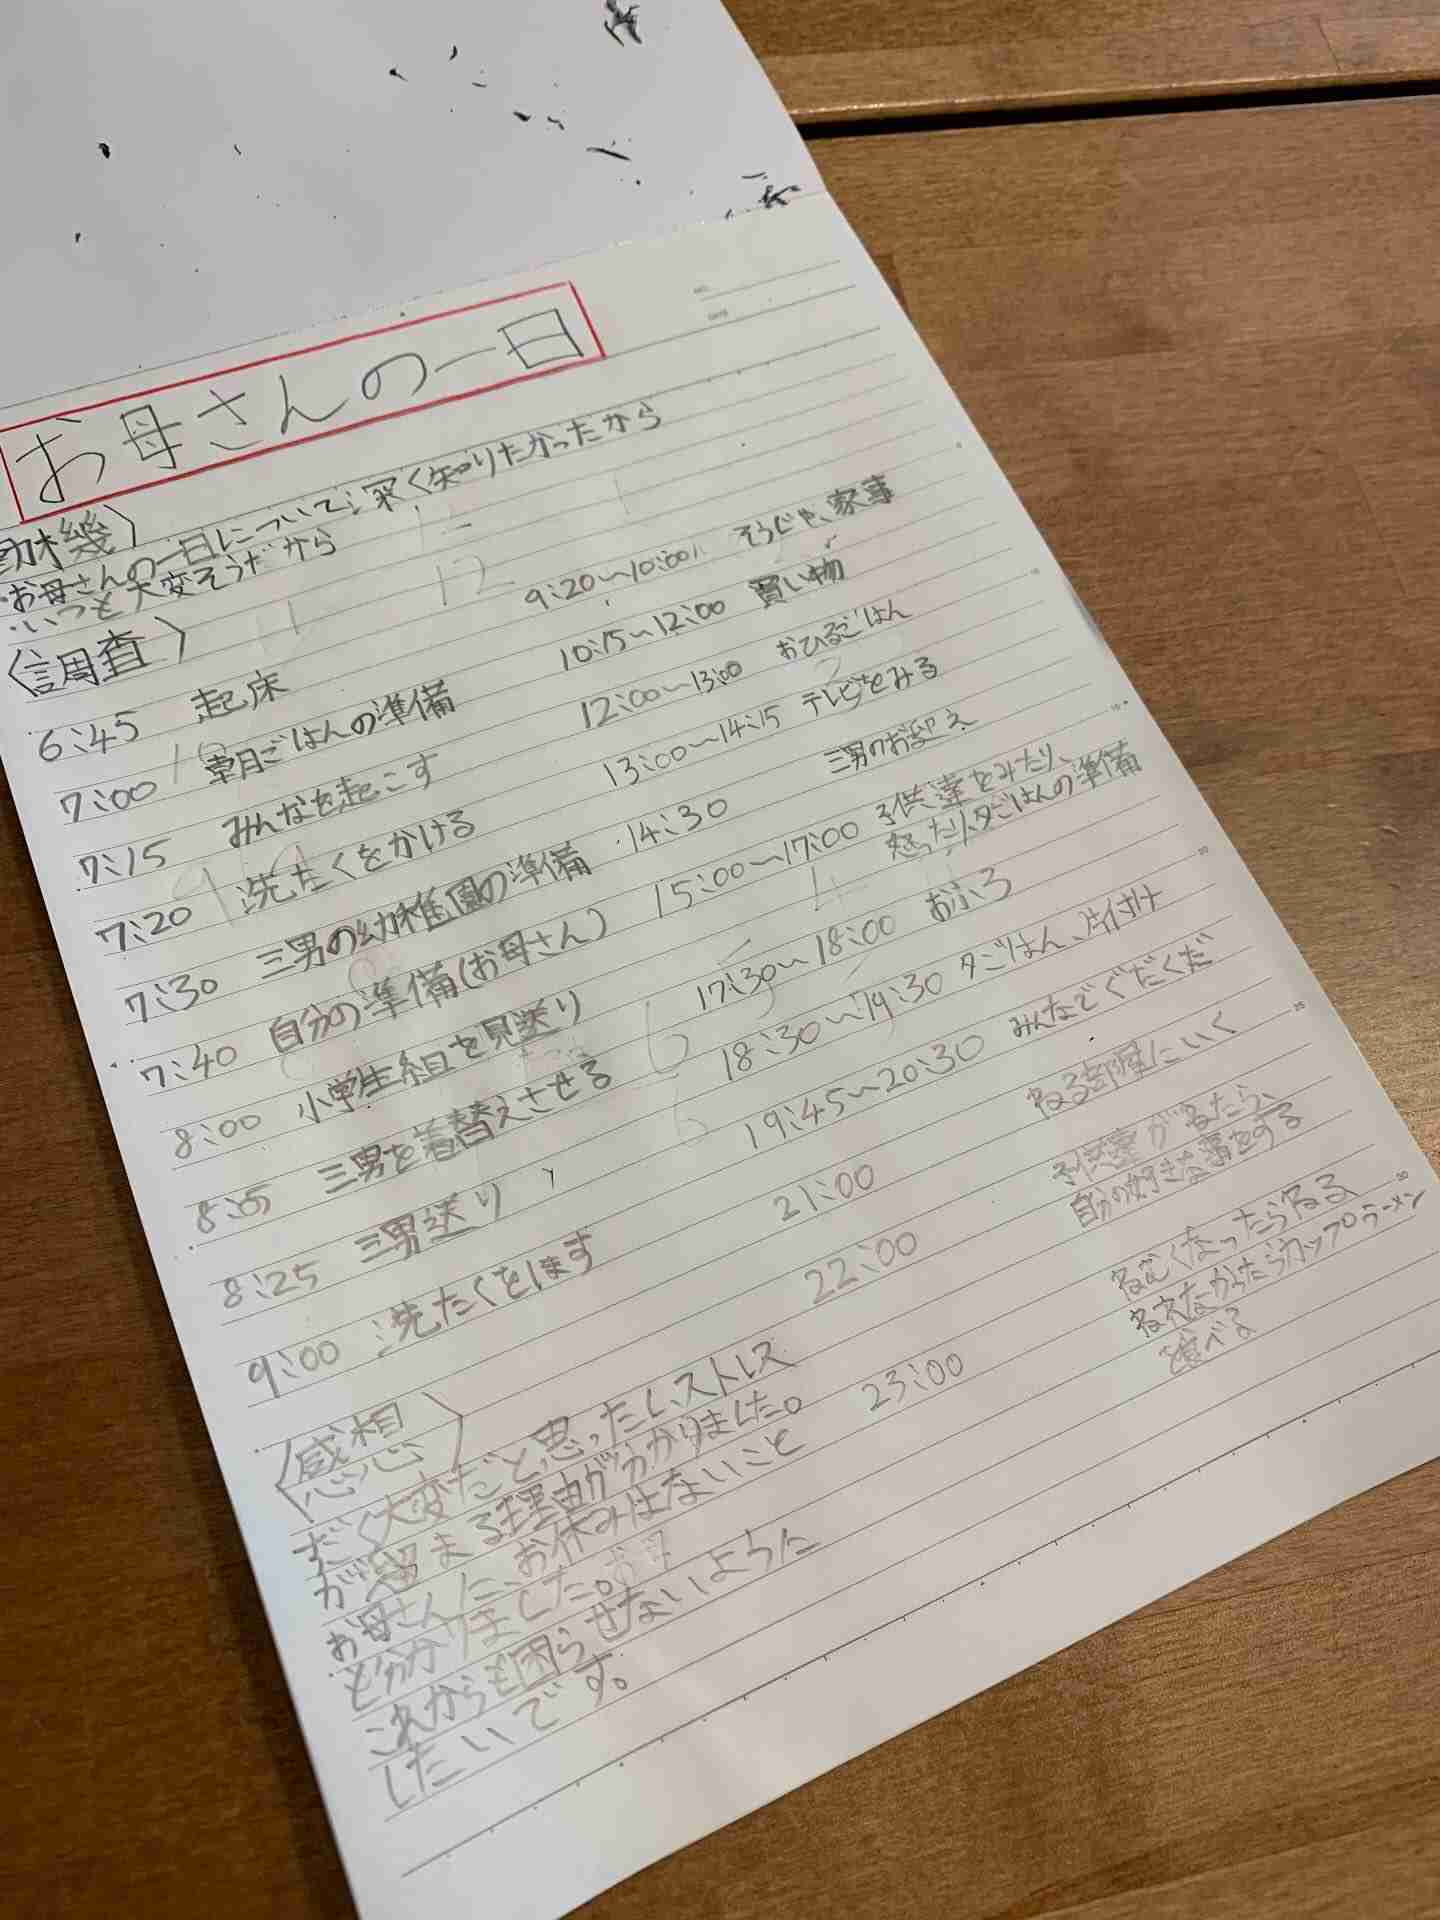 お母さんの一日
動機〉
・お母さんの一日について深く知りたかったから
・いつも大変そうだから
〈調査〉
6:45 起床
7:00 朝ごはんの準備
7:15 みんなを起こす
7:20 洗たくをかける
7:30 三男の幼稚園の準備
7:40 自分の準備(お母さん)
8:00 小学生組を見送り
8:05 三男を着替えさせる
8:25 三男送り
9:00 洗たくをほす
9:20〜10:00 そうじや、家事
10:15〜12:00 買い物
12:00〜13:00 おひるごはん
13:00〜14:15 テレビをみる
14:30 三男のお迎え
15:00〜17:00 子供達をみたり、
怒ったり、夕ごはんの準備
17:30〜18:00 おふろ
18:30〜19:30 夕ごはん、片付け
19:45〜20:30 みんなでぐだぐだ
21:00 ねる部屋にいく
22:00 子供達がねたら、
自分の好きな事をする
23:00 ねむくなったらねる
ねれなかったらカップラーメン
食べる
〈感想〉
すごく大変だと思ったし、ストレス
が留まる理由が分かりました。
お母さんに、お休みはないこと
と分かりました。
これからも困らせないように
したいです。